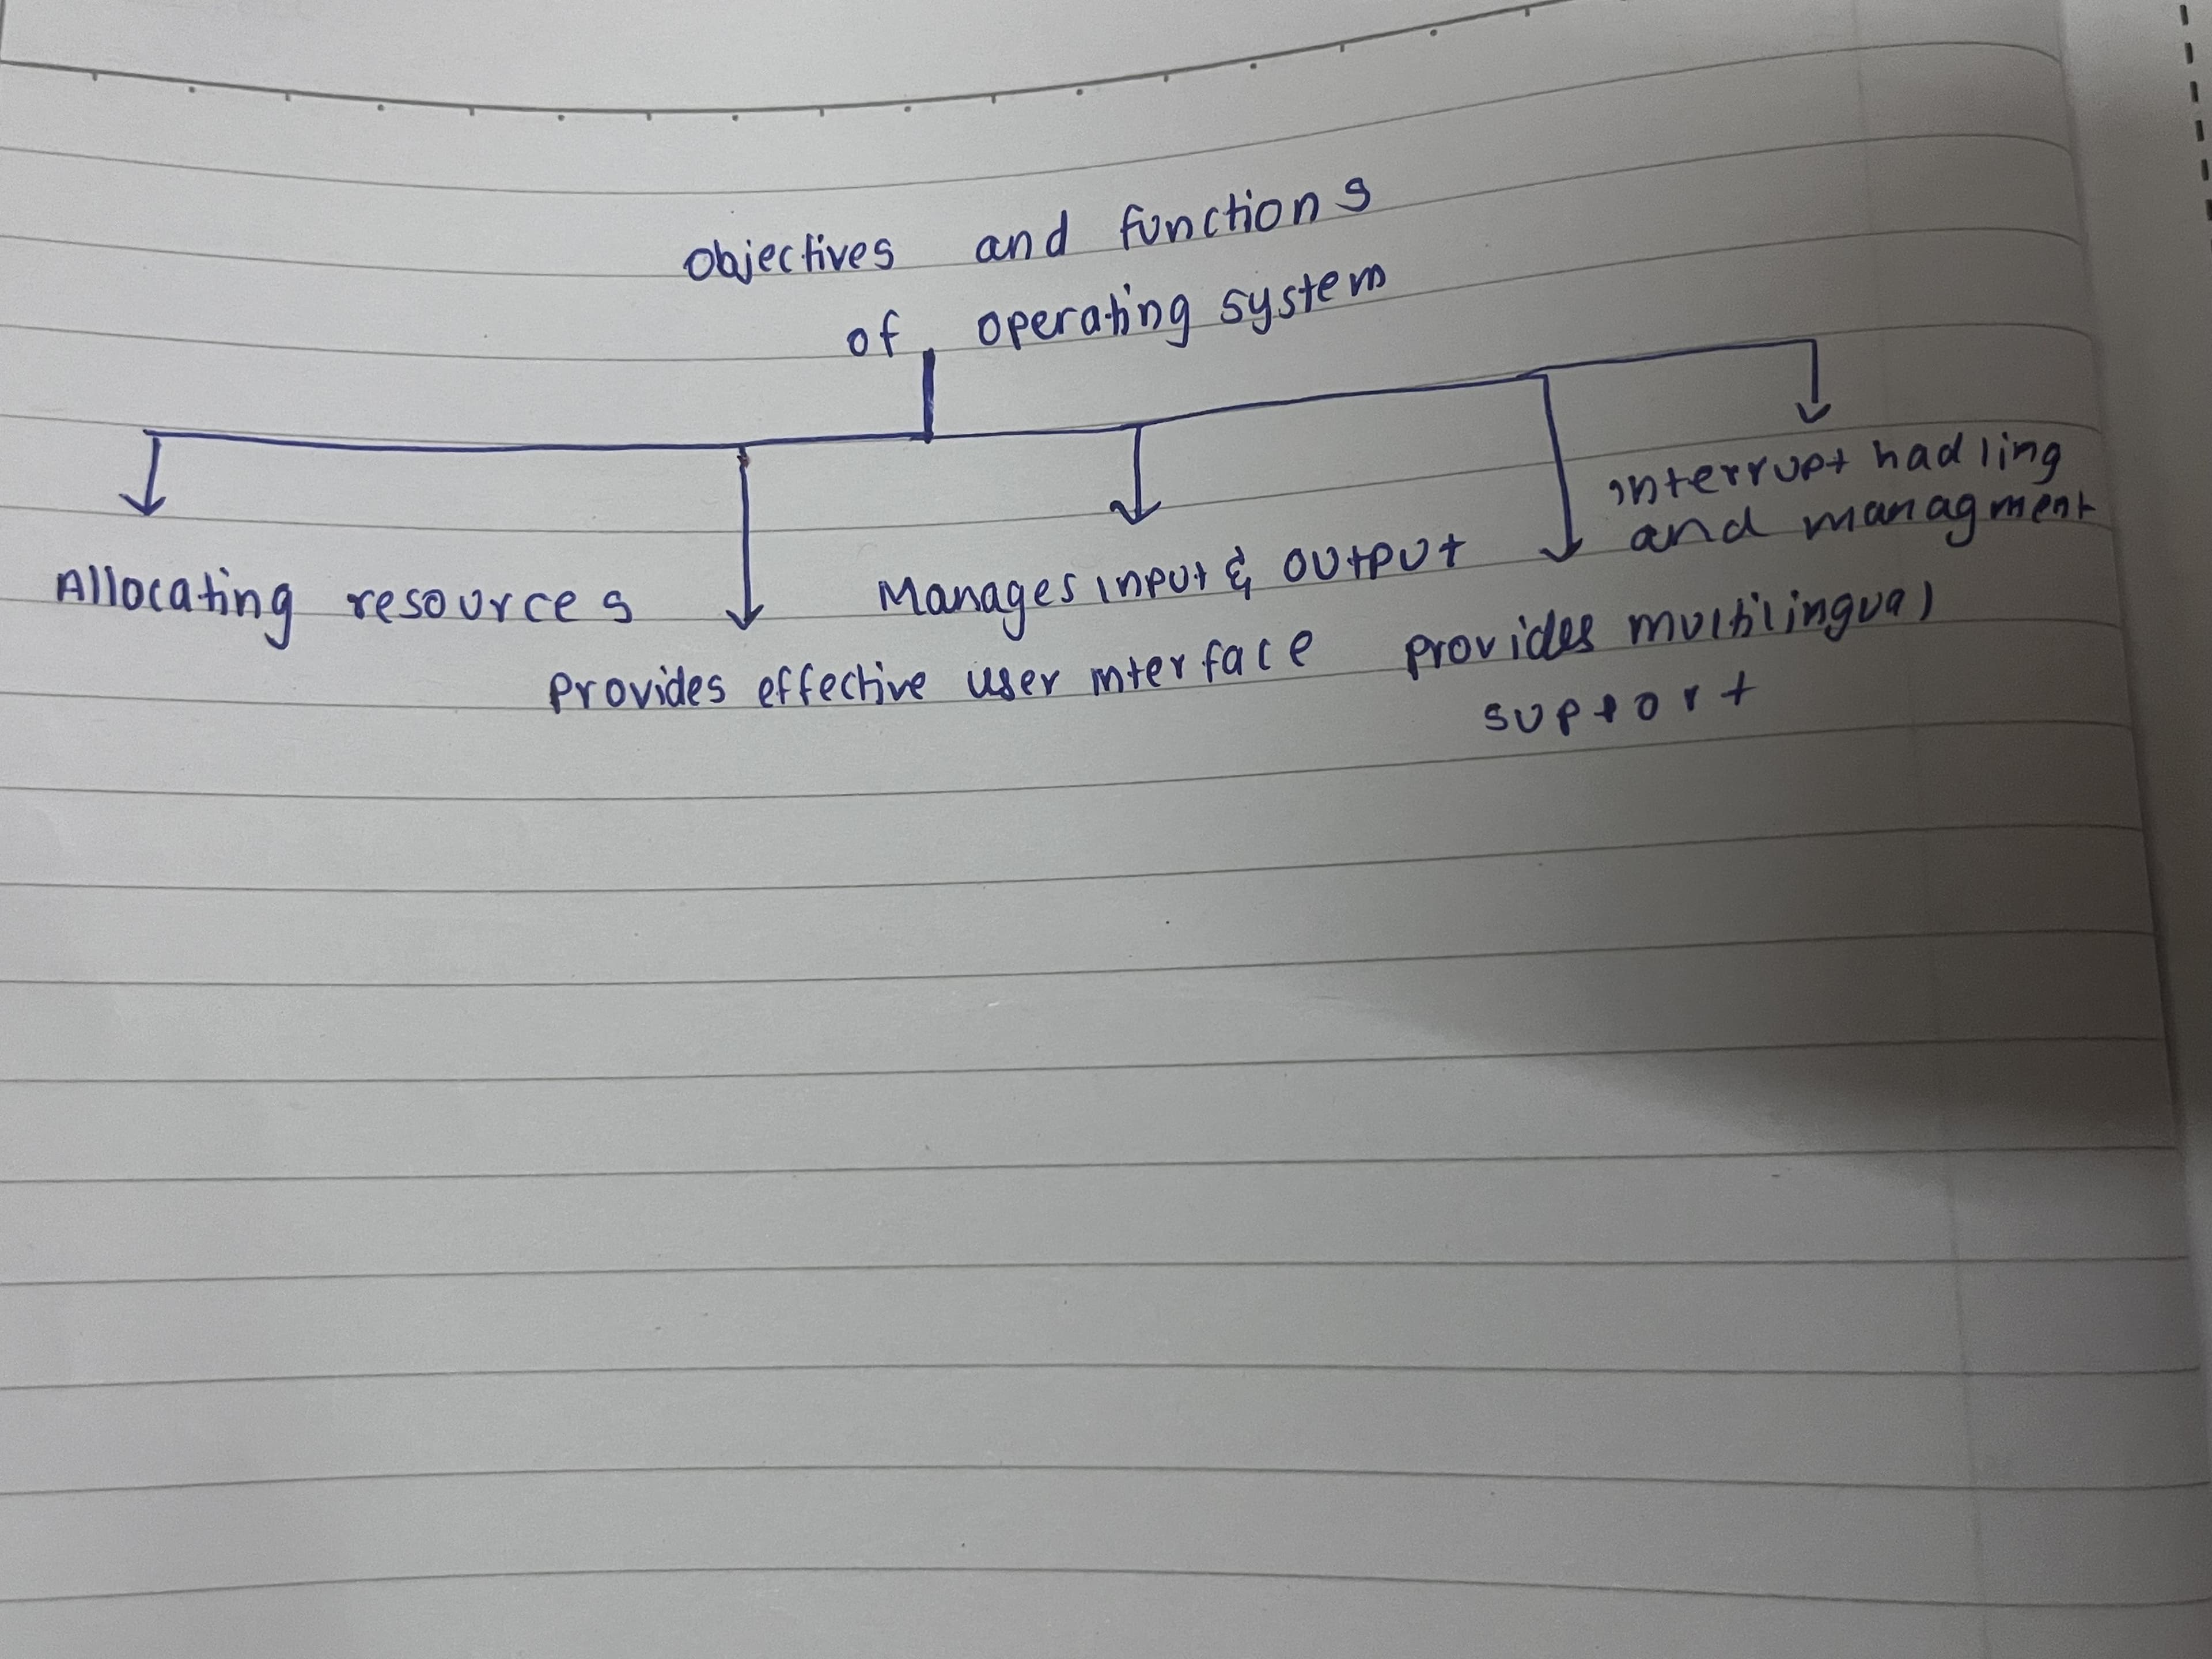 Objectives and functions
of operating system
Allocating resources
provides effective user interface
Manages input & output
provides multilingual
support
interrupt hadling
and managment